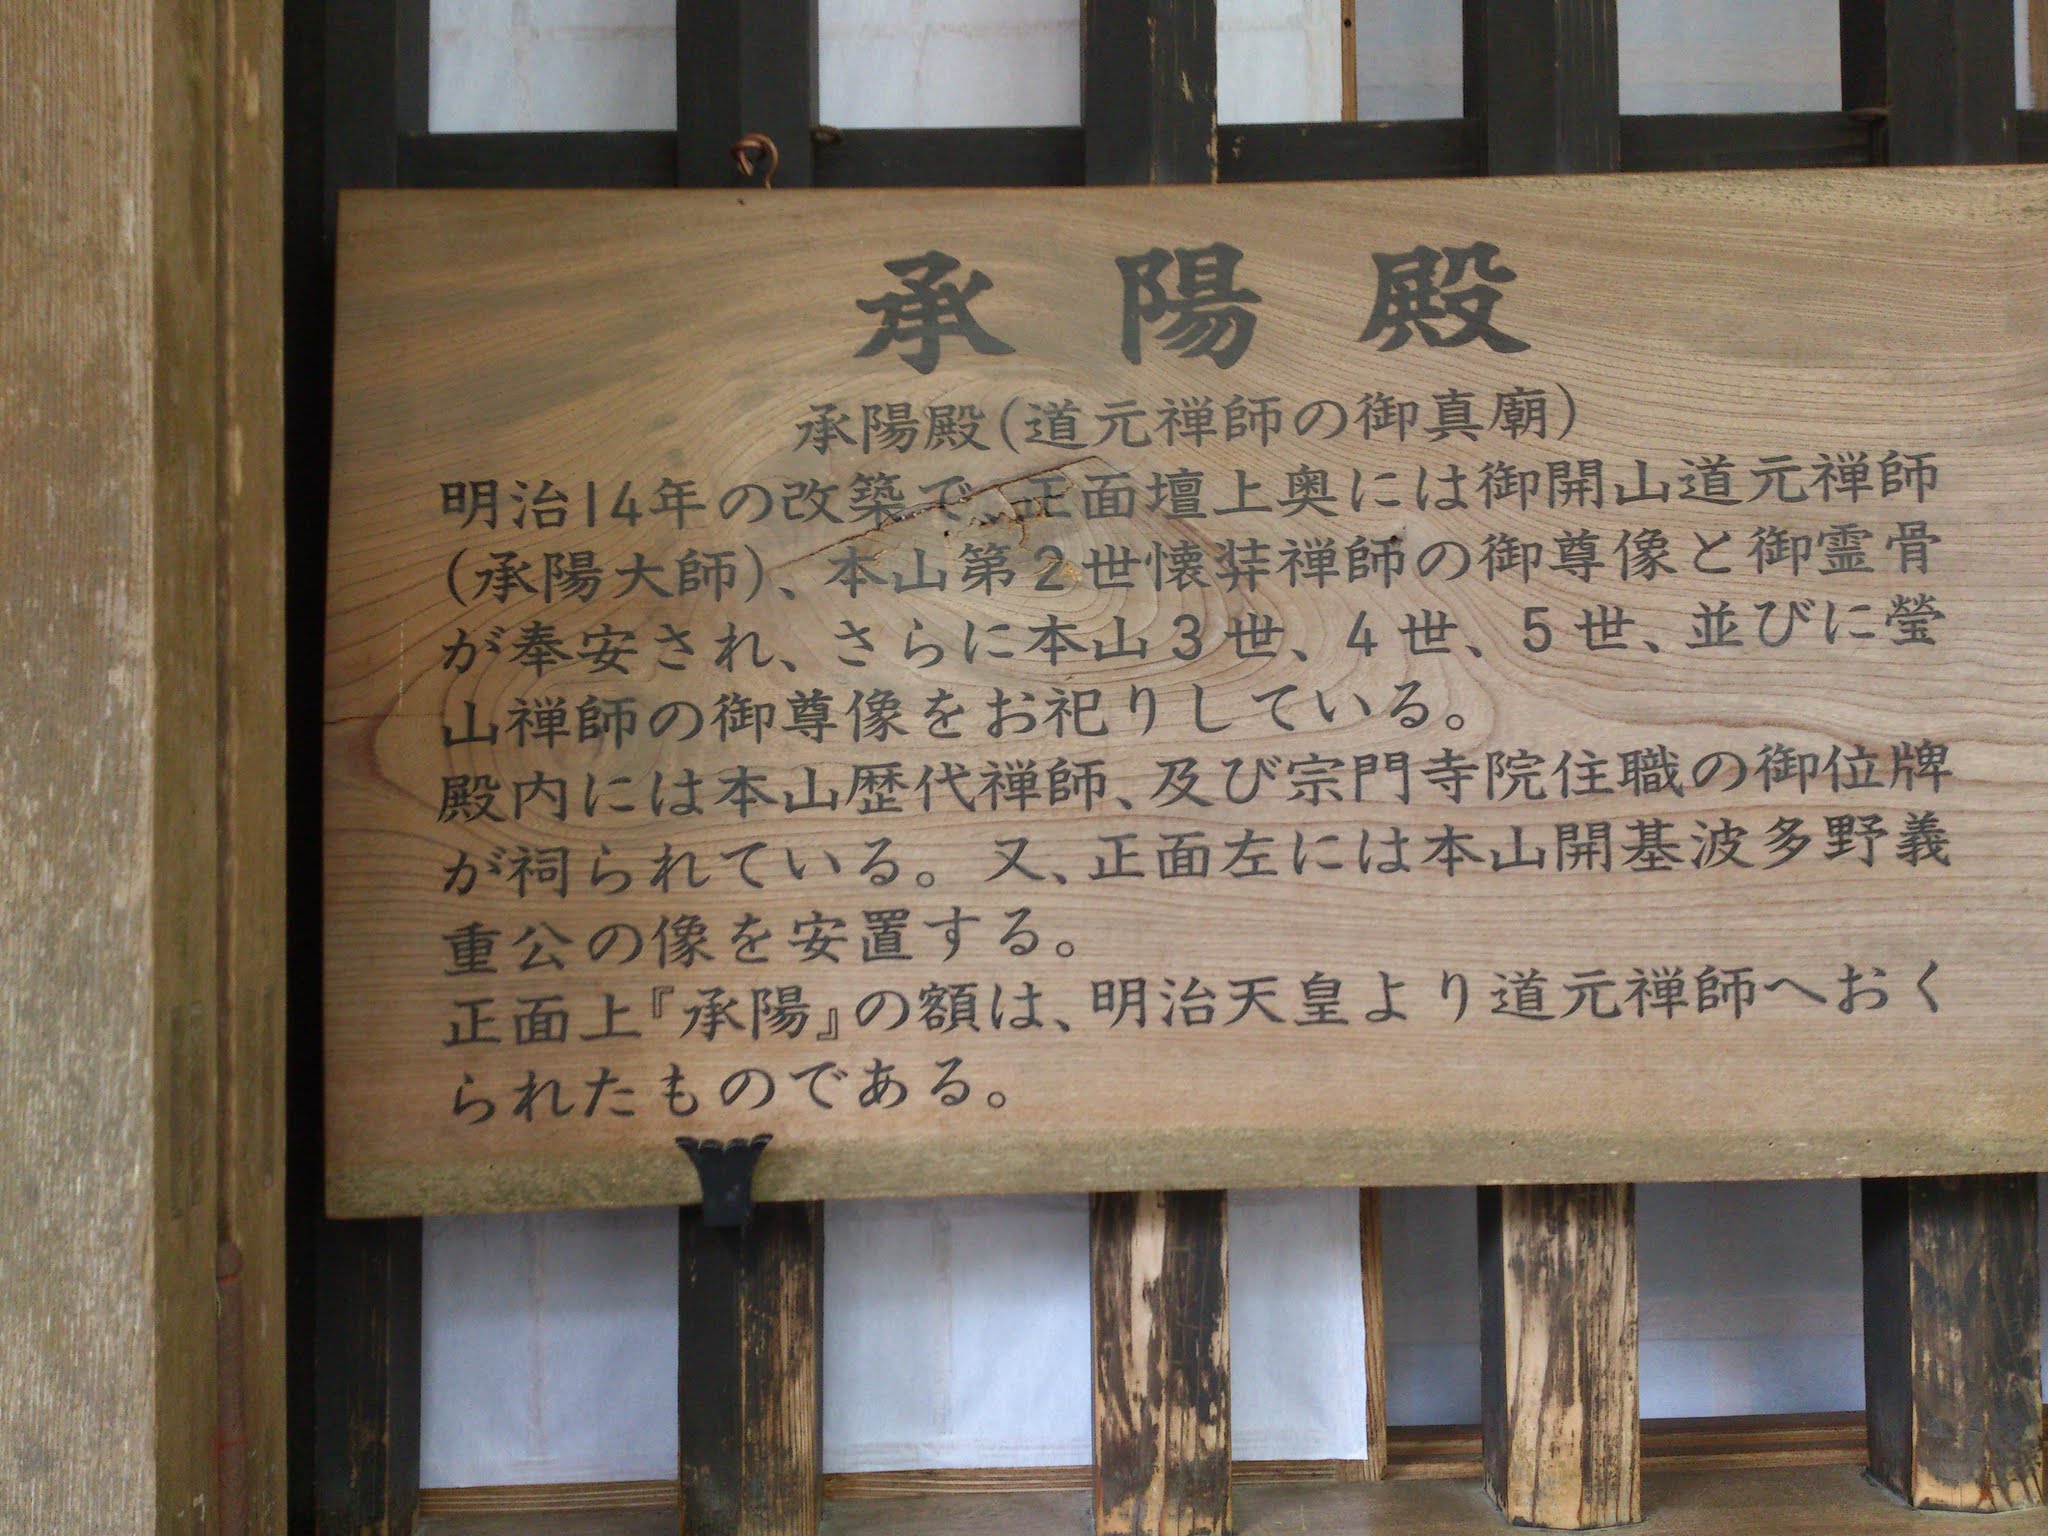 承陽殿
承陽殿(道元禅師の御真廟)
明治14年の改築で、正面壇上奥には御開山道元禅師
(承陽大師)、本山第2世懐弉禅師の御尊像と御霊骨
が奉安され、さらに本山3世、4世、5世、並びに瑩
山禅師の御尊像をお祀りしている。
殿内には本山歴代禅師、及び宗門寺院住職の御位牌
が祠られている。又、正面左には本山開基波多野義
重公の像を安置する。
正面上『承陽』の額は、明治天皇より道元禅師へおく
られたものである。